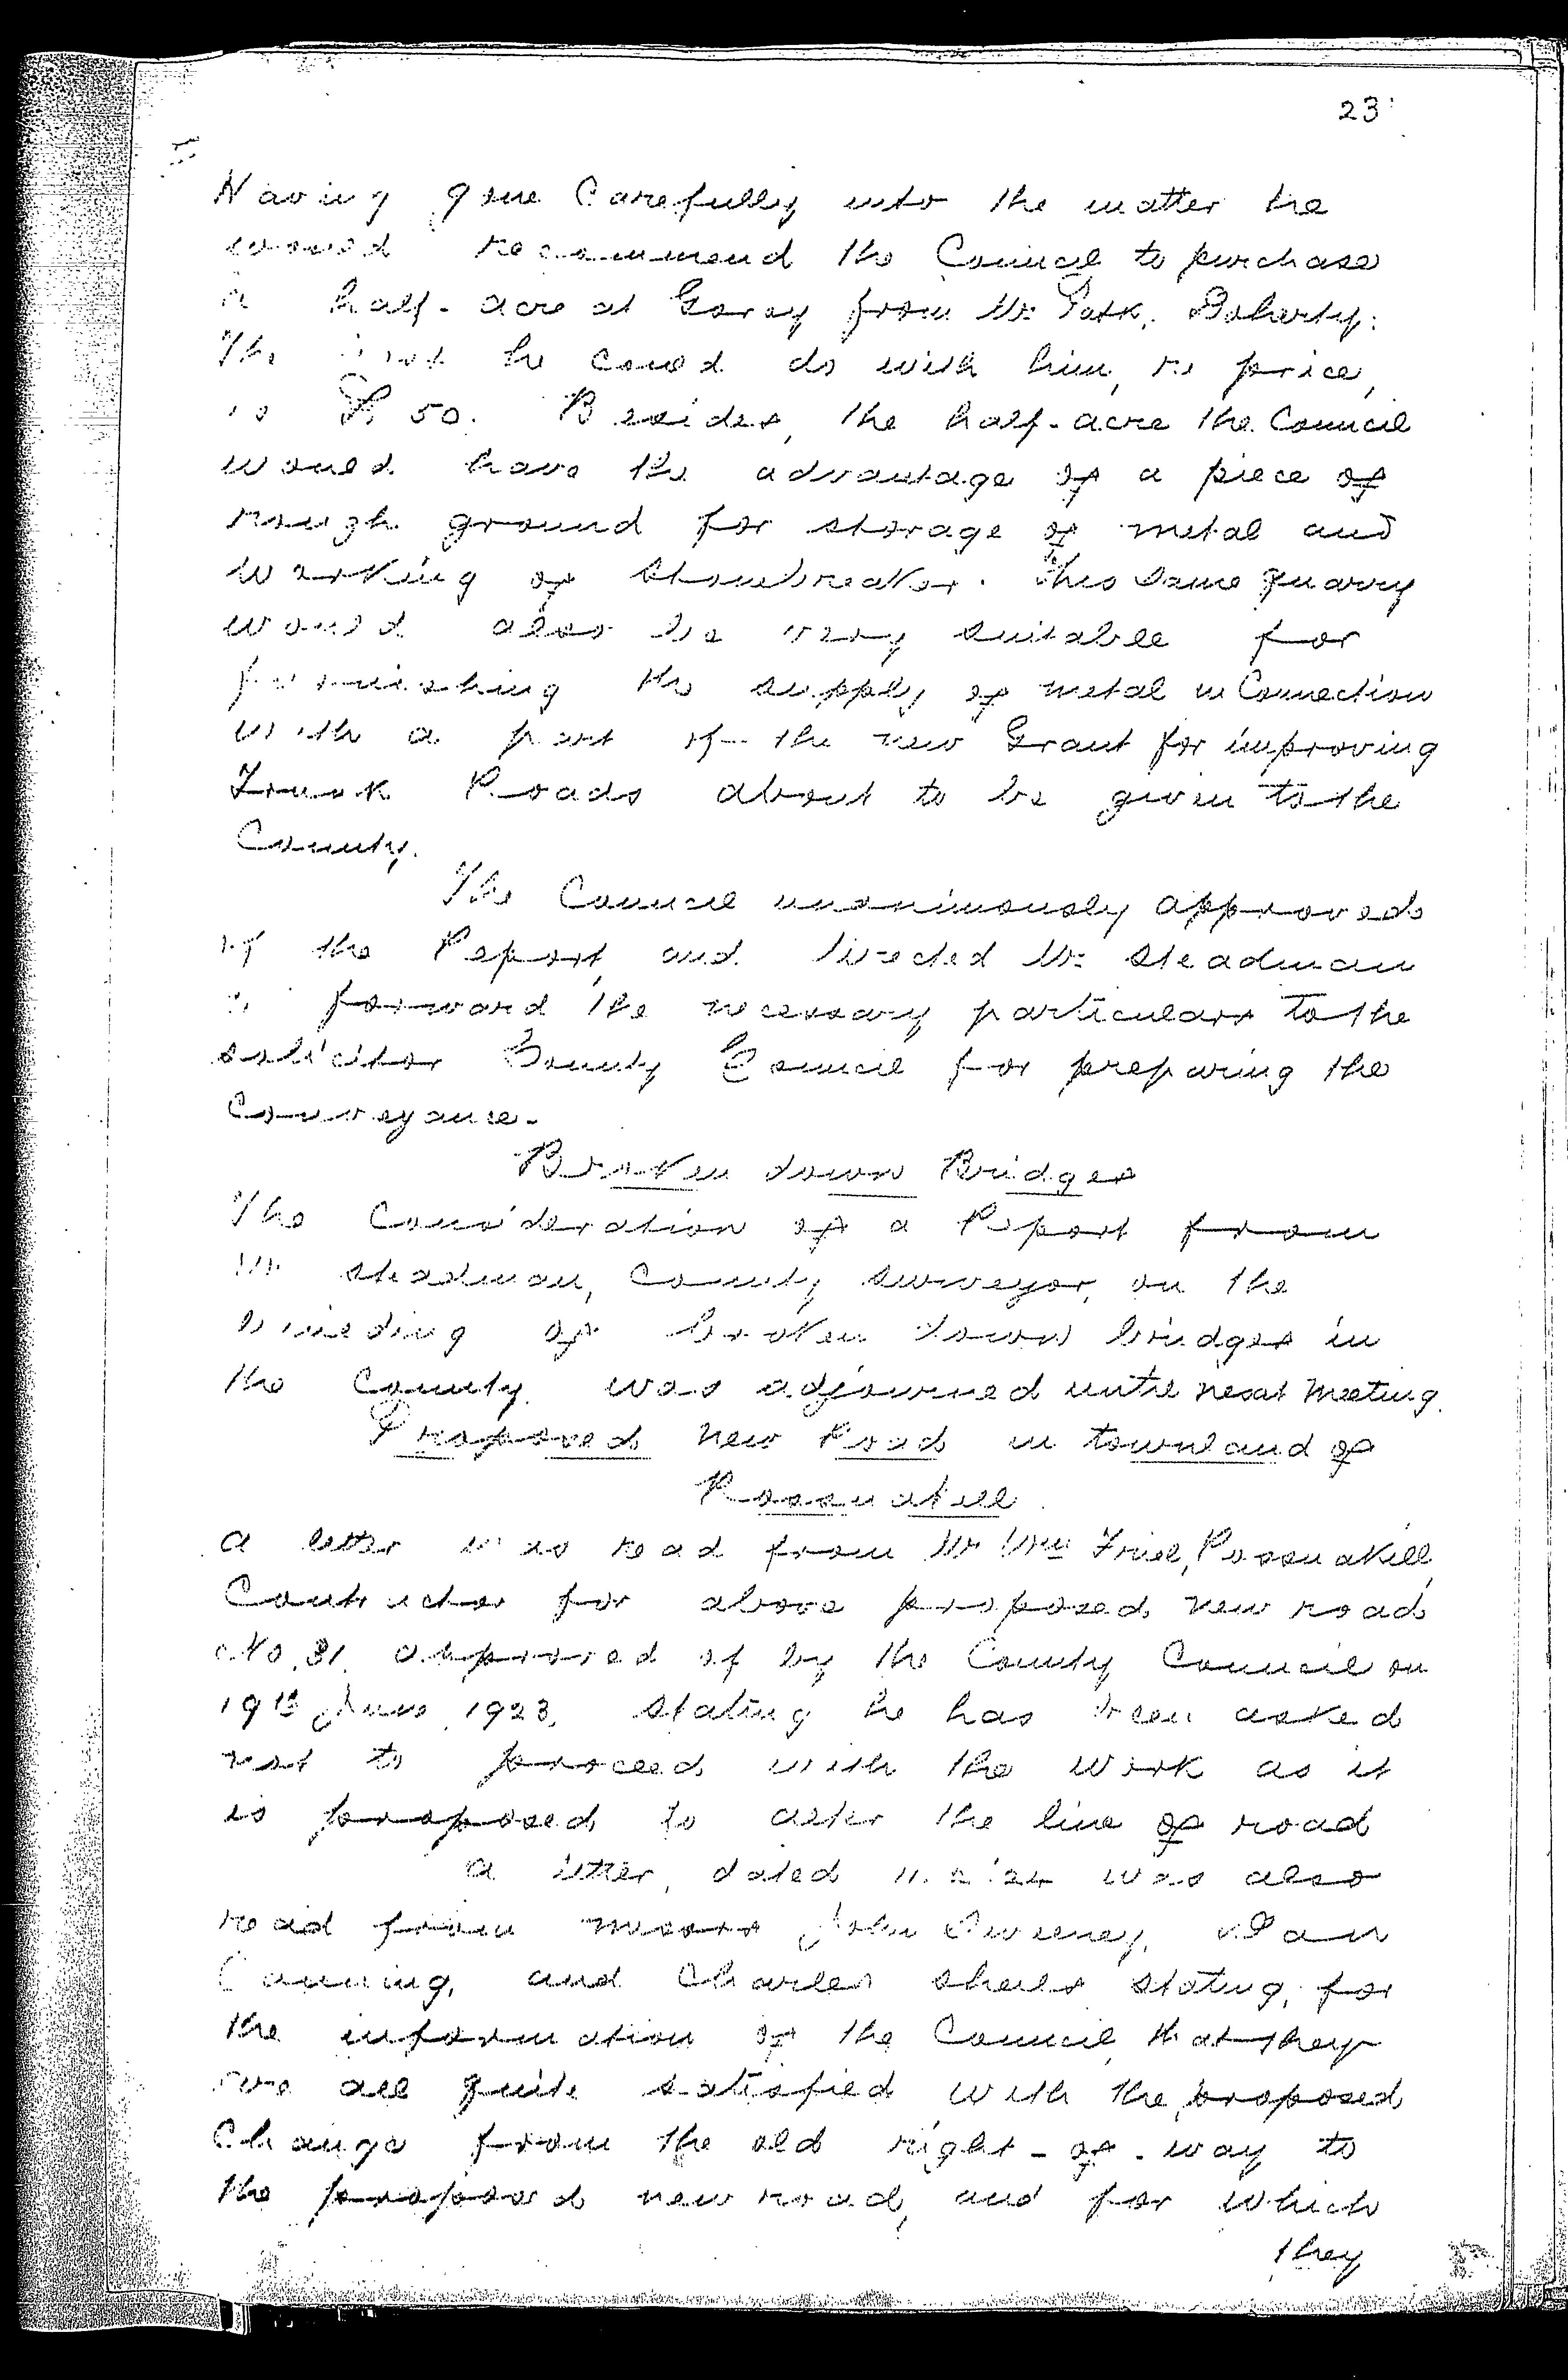 23
Having gone Carefully into the matter he
would recommend the Council to purchase
a half-acre at Goray from Mr Patk. Doherty.
The best he could do with him, re price,
is £50. Besides, the half-acre the Council
would have the advantage of a piece of
rough ground for storage of metal and
working of stonebreaker. This same quarry
would also be very suitable for
furnishing the supply of metal in Connection
with a part of the new Grant for improving
Trunk Roads about to be given to the
County.
The Council unanimously approved
of the Report, and directed Mr Steadman
to forward the necessary particulars to the
solicitor County Council for preparing the
Conveyance.
Broken down Bridges
The Consideration of a Report from
Mr Steadman, County Surveyor, on the
of Broken down bridges in
the County was adjourned until next meeting.
Proposed New Road in townland of
Rossnakill.
A letter was read from Mr Wm Friel, Rossnakill,
Contractor for above proposed new road
No. 31. approved of by the County Council on
19th June 1923, stating he has been asked
not to proceed with the work as it
is proposed to alter the line of road
A letter, dated 11.2.24 was also
read from Messrs John Sweeney,
Canning, and Charles Sheils stating, for
the information of the Council, that they
are all quite satisfied with the proposed
Change from the old right-of-way to
the proposed new road, and for which
they